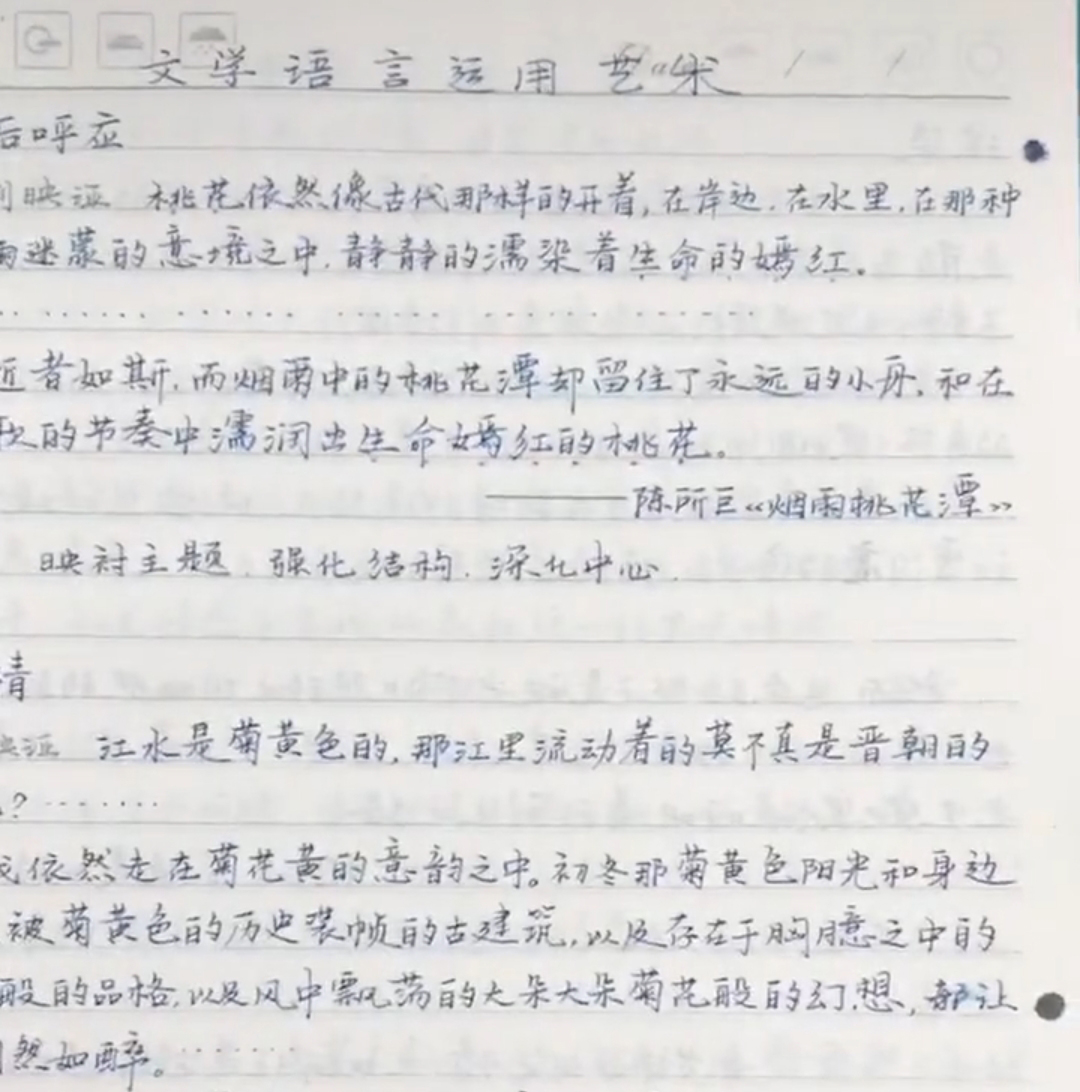 文学语言运用艺术
后呼应
例映证 桃花依然像古代那样的开着,在岸边.在水里.在那种
雨迷蒙的意境之中.静静的濡染着生命的嫣红。
逝者如斯.而烟雨中的桃花潭却留住了永远的小舟.和在
秋的节奏中濡润出生命嫣红的桃花。
——陈所巨《烟雨桃花潭》
映衬主题.强化结构.深化中心.
情
映证 江水是菊黄色的.那江里流动着的莫不真是晋朝的
?·······
我依然走在菊花黄的意韵之中。初冬那菊黄色阳光和身边
被菊黄色的历史装帧的古建筑,以及存在于胸臆之中的
般的品格.以及风中飘荡的大朵大朵菊花般的幻想,都让
然如醉。·······